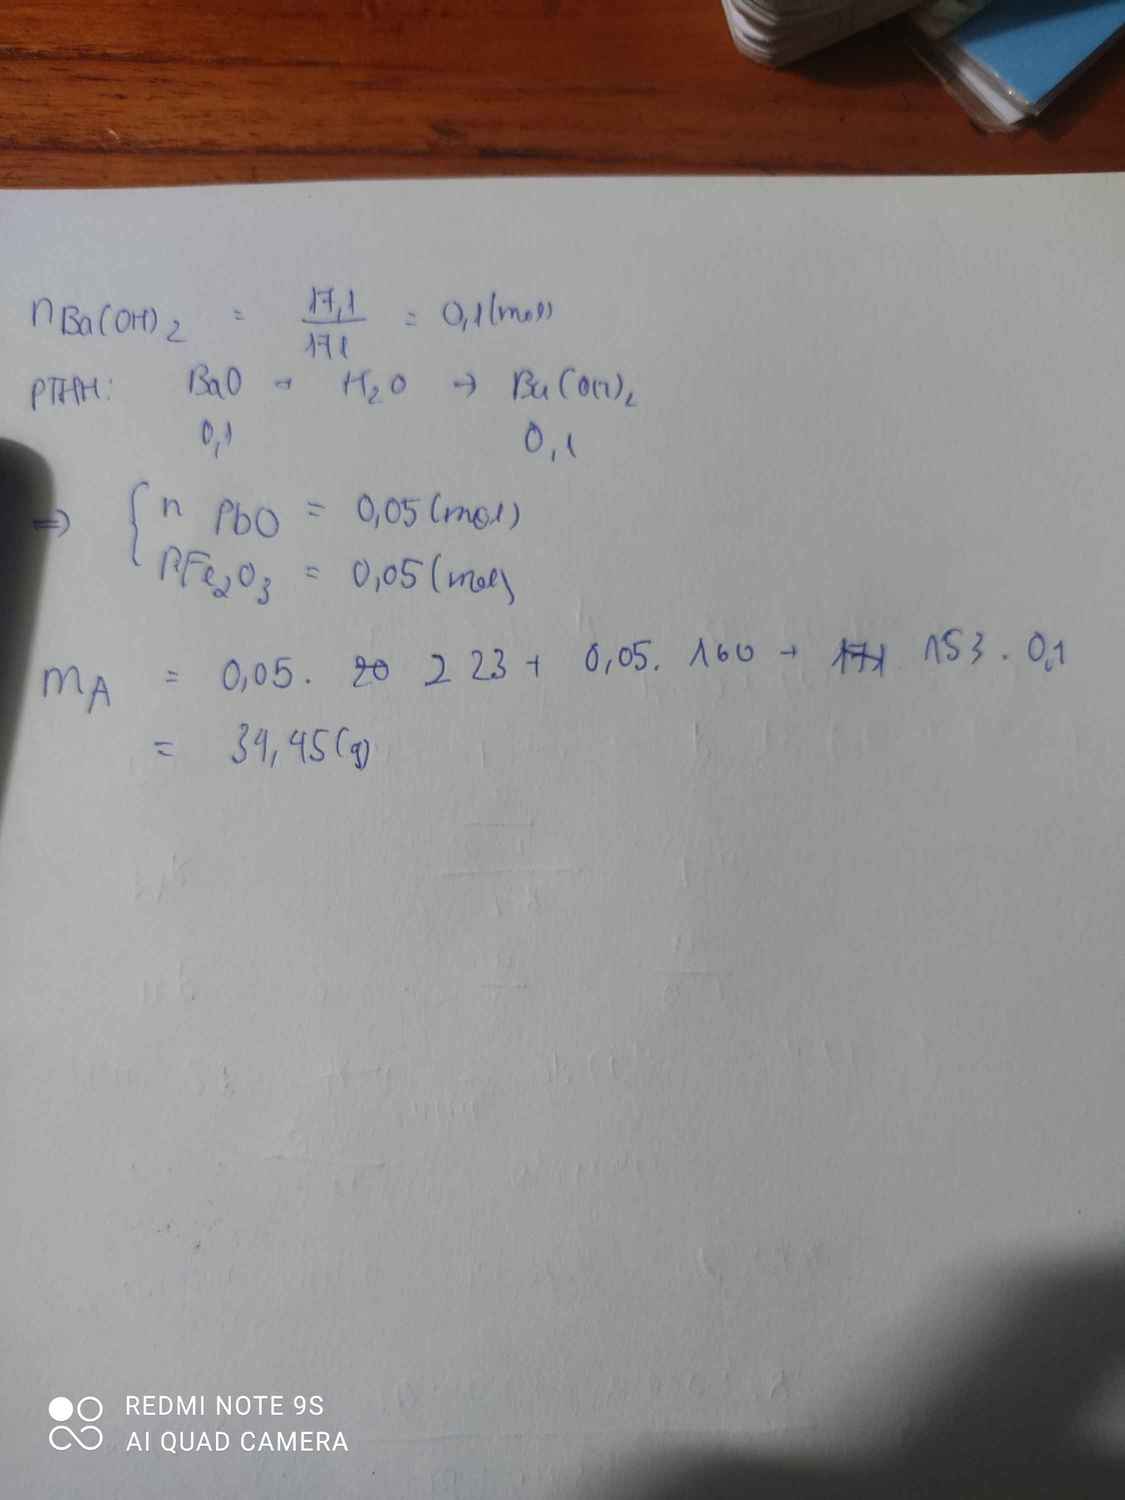 nBa(OH)2 = 17,1/171 = 0,1(mol)
PTHH: BaO + H2O → Ba(OH)2
0,1 0,1
⇒ { n PbO = 0,05 (mol)
nFe2O3 = 0,05 (mol)
mA = 0,05. 223 + 0,05. 160 + 153. 0,1
= 34,45(g)
REDMI NOTE 9S
AI QUAD CAMERA